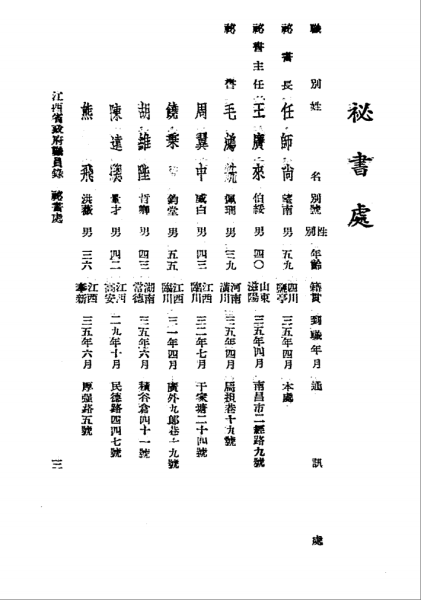 祕書處
職別 姓名 別號 性別 年齡 籍貫 到職年月 通訊處
祕書長 任師尚 望南 男 五九 四川鹽亭 三五年四月 本處
祕書主任 王廣來 伯綏 男 四〇 山東滋陽 三五年四月 南昌市二經路九號
祕書 毛鴻 佩珊 男 三九 河南潢川 三五年四月 扁担巷十九號
周翼中 威白 男 四三 江西臨川 三二年七月 干家塘二十四號
饒秉 鈞堂 男 五五 江西臨川 三一年四月 廣外九郎巷十九號
胡雄陞 哲卿 男 四三 湖南常德 三五年六月 積谷倉四十一號
陳遠 才 男 四二 江西高安 二九年十月 民德路四四七號
熊飛 洪薇 男 三六 江西奉新 三五年六月 厚强路五號
江西省政府職員錄 祕書處 三